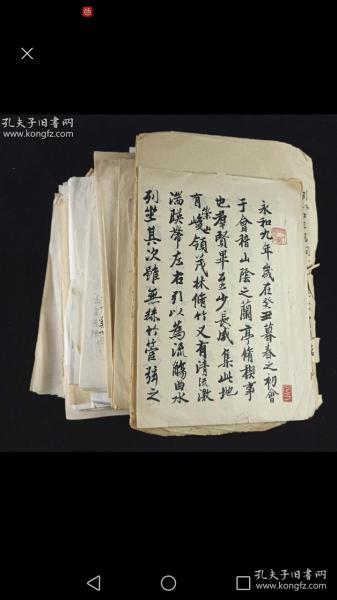 孔夫子旧书网
www.kongfz.com
永和九年歲在癸丑暮春之初會
于會稽山陰之蘭亭脩禊事
也羣賢畢至少長咸集此地
有崇山峻領茂林脩竹又有清流激
湍暎帶左右引以為流觴曲水
列坐其次雖無絲竹管弦之
孔夫子旧书网
www.kongfz.com
孔夫子旧书网
www.kongfz.com